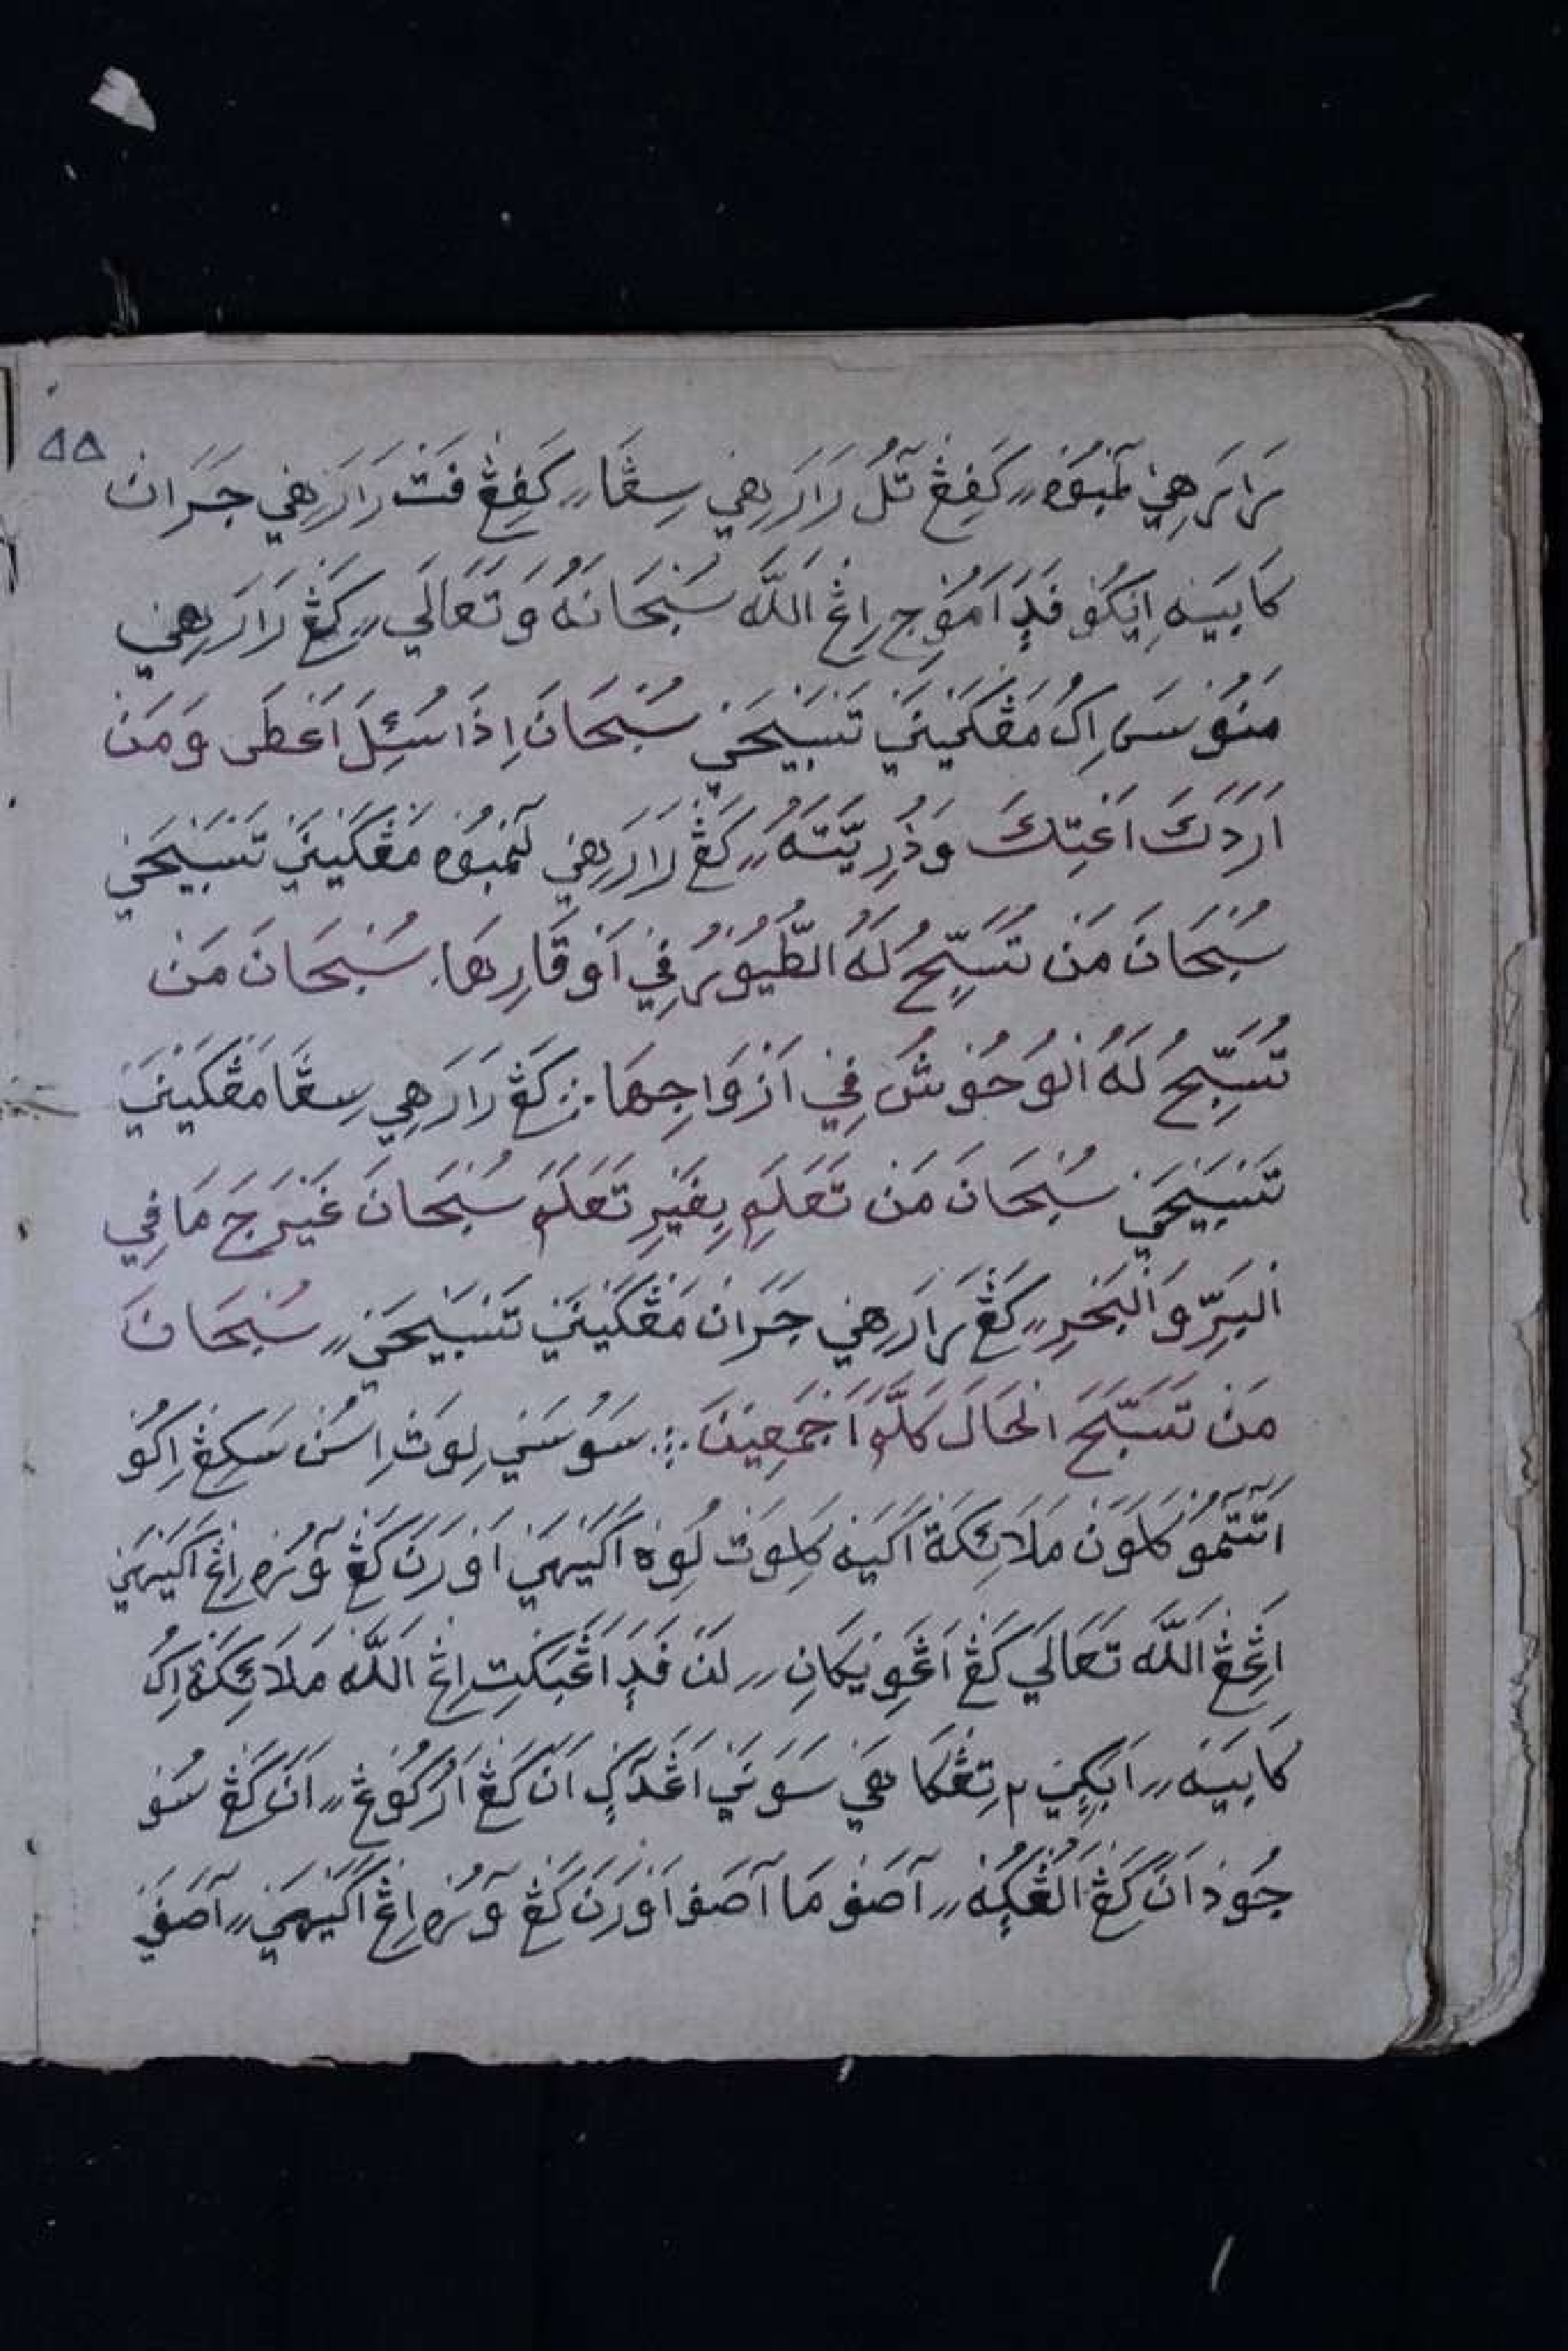 ٥٨
رَارَهِيْ لَمْبُوْهْ كَڤِڠْ تَلُ رَارَهِيْ سِڠَا كَڤِڠْ فَتْ رَارَهِيْ جَرَانْ
كَابَيْهْ اِيْكُوْ فَدٜا اَمُوْجِ اِڠْ اللّٰهْ سُبْحَانَهُ وَتَعَالَى كَڠْ رَارَهِيْ
مَنُوْسَا اِكُ مَڠْكَيْنَيْ تَسْبَيْحَيْ سُبْحَانَ اِذَا سُئِلَ اَعْطَى وَمَنْ
اَرَدَكَ اَعْتِكَ وَذُرِيَّتَهُ كَڠْ رَارَهِيْ لَمْبُوْهْ مَڠْكَيْنَيْ تَسْبَيْحَيْ
سُبْحَانَ مَنْ تُسَبِّحُ لَهُ الطُّيُوْرُ فِيْ اَوْقَارِهَا سُبْحَانَ مَنْ
تُسَبِّحُ لَهُ الْوُحُوْشُ فِيْ اَزْوَاجِهَا كَڠْ رَارَهِيْ سِڠَا مَڠْكَيْنَيْ
تَسْبَيْحَيْ سُبْحَانَ مَنْ تَعَلَمِ بِغَيْرِ تَعَلَمَ سُبْحَانَ غَيْرَجَ مَا فِي
الْبَرِّ وَالْبَحْرِ كَڠْ رَارَهِيْ جَرَانْ مَڠْكَيْنَيْ تَسْبَيْحَيْ سُبْحَانَ
مَنْ تَسَبَّحَ الْحَالَ كُلَّهَا اَجْمَعِيْنَ سَوُسَنَيْ لِوَتْ اِسُنْ سَكِڠْ اِكُوْ
اَتَتَمُوْ كَلَوَنْ مَلَائِكَةْ اَكَيْهْ كَلِوَتْ لُوِهْ اَكَيْهَيْ اَوْرَنَ كَڠْ وَرُهْ اِڠْ اَكَيْهَيْ
اَڠِڠْ اللّٰهْ تَعَالَى كَڠْ اَڠْوِيْكَانِ لَنْ فَدٜا اَڠْبَكْتِ اِڠْ اللّٰهْ مَلَائِكَةْ اِكُ
كَابَيْهْ اَبَكٜيْ ٢ تِڠْكَاهَيْ سَوَنَيْ اَڠَدَكْ اَنَ كَڠْ اَرُكُوْعْ اَنَ كَڠْ سُوْ
جُوْدْ اَنَ كَڠْ الُڠْكُهْ اَصَفْ مَا اَصَفْ اَوْرَنَ كَڠْ وَرُهْ اِڠْ اَكَيْهَيْ اَصَفَيْ